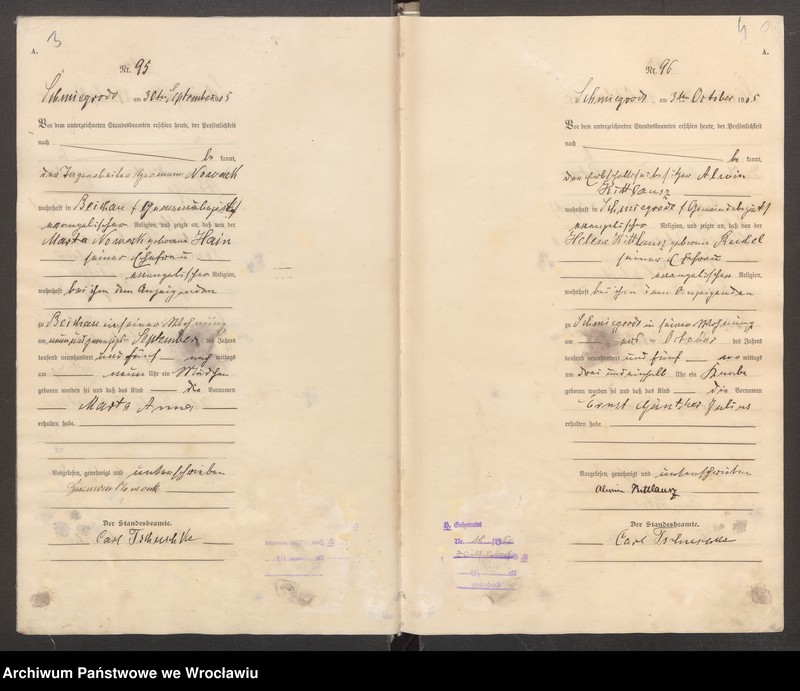 3
A.
Nr. 95
Schmiegrode am 30ten September 1905
Vor dem unterzeichneten Standesbeamten erschien heute, der Persönlichkeit
nach
be kannt,
der Tagearbeiter Hermann Nowack
wohnhaft in
evangelischer Religion, und zeigte an, daß von der
Marta Nowack geborene Hain
seiner Ehefrau
evangelischer Religion,
wohnhaft bei ihm dem Anzeigenden
zu in seiner Wohnung
am neunundzwanzigsten September des Jahres
tausend neunhundert und fünf nach mittags
um neun Uhr ein Mädchen
geboren worden sei und daß das Kind die Vornamen
Marta Anna
erhalten habe.
Vorgelesen, genehmigt und unterschrieben
Hermann Nowack
Der Standesbeamte.
Carl Tschuschke
4
A.
Nr. 96
Schmiegrode am 3ten October 1905
Vor dem unterzeichneten Standesbeamten erschien heute, der Persönlichkeit
nach
be kannt,
der Erbscholtiseibesitzer Alwin
Kittlausz
wohnhaft in Schmiegrode Gemeindebezirk
evangelischer Religion, und zeigte an, daß von der
Helene Kittlausz geborene
seiner Ehefrau
evangelischer Religion,
wohnhaft bei ihm dem Anzeigenden
zu Schmiegrode in seiner Wohnung
am October des Jahres
tausend neunhundert und fünf vor mittags
um drei und einhalb Uhr ein Knabe
geboren worden sei und daß das Kind die Vornamen
Ernst Günther Julius
erhalten habe.
Vorgelesen, genehmigt und unterschrieben
Alwin Kittlausz
Der Standesbeamte.
Carl Tschuschke
Archiwum Państwowe we Wrocławiu